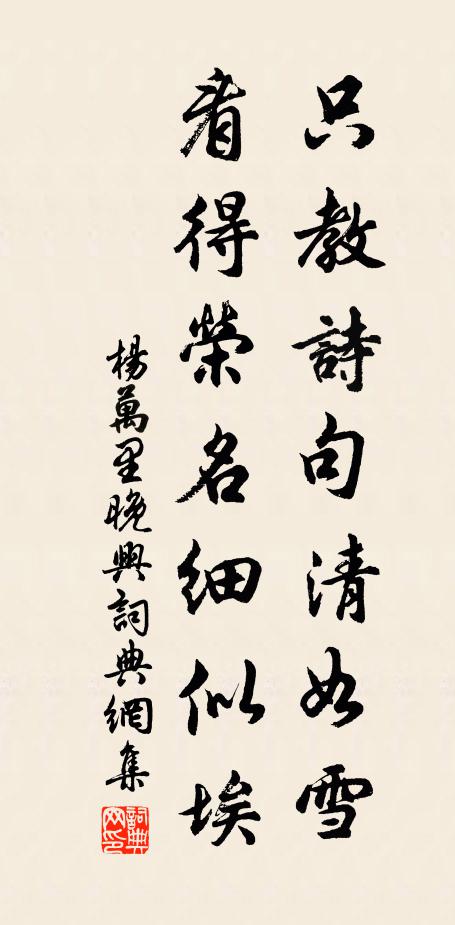 只教詩句清如雪
看得榮名細似埃
楊萬里晚興詞典網集
詞典網印